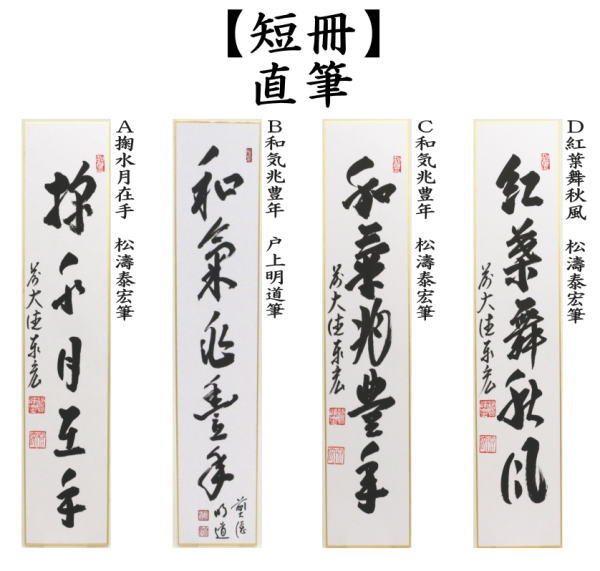 【短冊】
直筆
A掬水月在手 松濤泰宏筆
掬水月在手
前大徳泰宏
B和気兆豊年 戸上明道筆
和氣兆豊年
前大徳
明道
C和気兆豊年 松濤泰宏筆
和氣兆豊年
前大徳泰宏
D紅葉舞秋風 松濤泰宏筆
紅葉舞秋風
前大徳泰宏